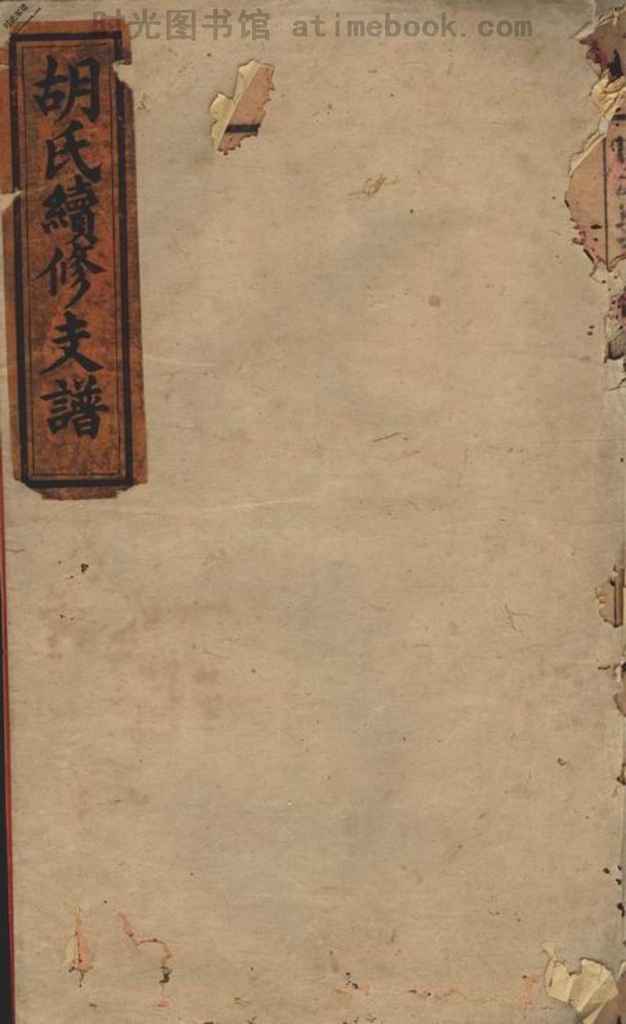 时光图书馆 atimebook.com
胡氏續修支譜